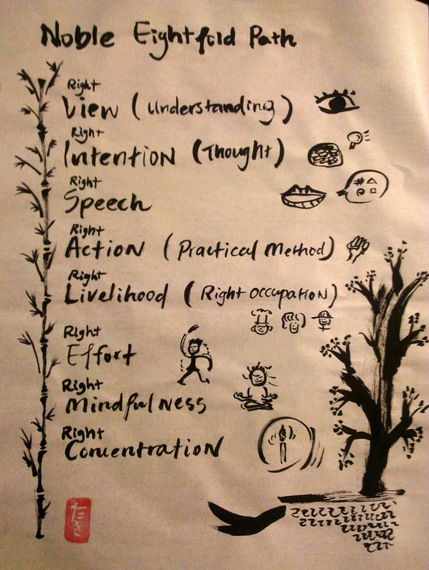 Noble Eightfold Path
Right
View (Understanding)
Right
Intention (Thought)
Right
Speech
Right
Action (Practical Method)
Right
Livelihood (Right Occupation)
Right
Effort
Right
Mindfulness
Right
Concentration